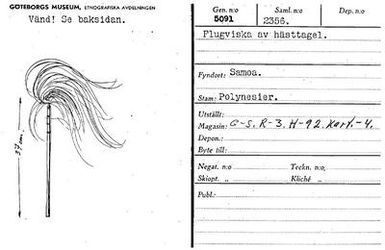 GÖTEBORGS MUSEUM, ETNOGRAFISKA AVDELNINGEN
Vänd! Se baksidan.
37 cm.
Gen. n:o
5091
Saml. n:o
2356.
Dep. n:o
Flugviska av hästtagel.
Fyndort: Samoa.
Stam: Polynesier.
Utställt:
Magasin: C-S. R-3. H-92. Kart.-4.
Depon.:
Byte till:
Negat. n:o
Teckn. n:o.
Skiopt. „
Kliché „
Publ.: